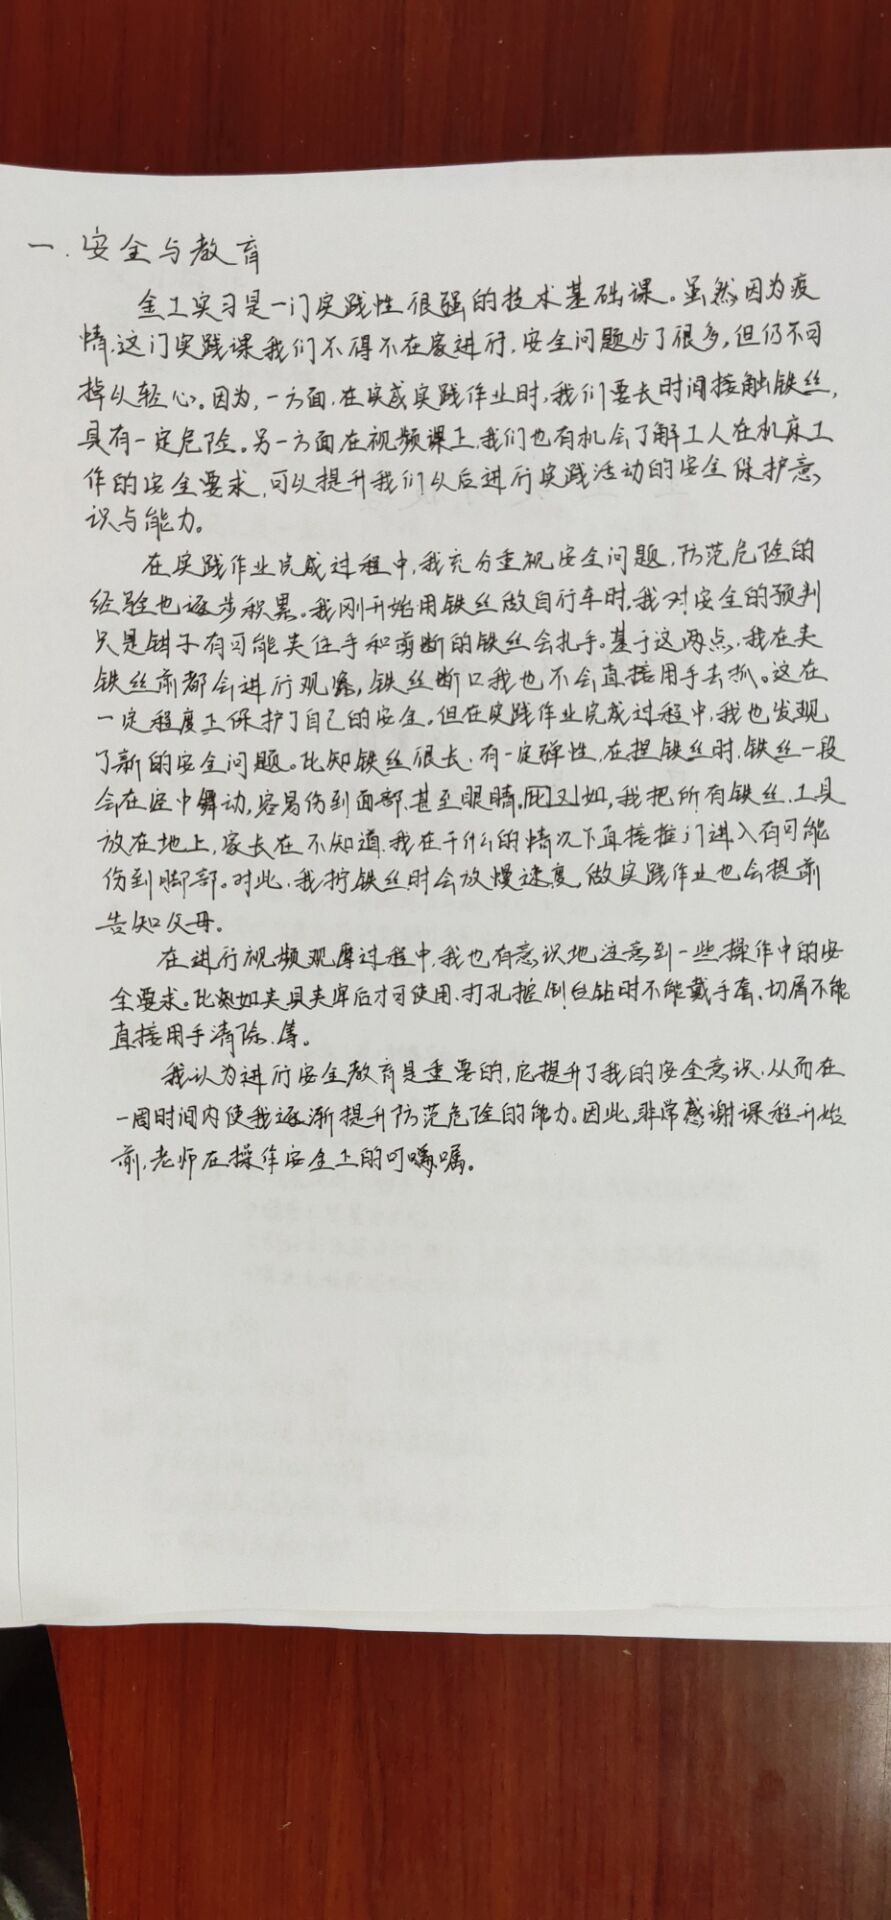 一.安全与教育
金工实习是一门实践性很强的技术基础课。虽然因为疫
情,这门实践课我们不得不在家进行,安全问题少了很多,但仍不可
掉以轻心。因为,一方面,在完成实践作业时,我们要长时间接触铁丝,
具有一定危险。另一方面在视频课上,我们也有机会了解工人在机床工
作的安全要求,可以提升我们以后进行实践活动的安全保护意
识与能力。
在实践作业完成过程中,我充分重视安全问题,防范危险的
经验也逐步积累。我刚开始用铁丝做自行车时,我对安全的预判
只是钳子有可能夹住手和剪断的铁丝会扎手。基于这两点,我在夹
铁丝前都会进行观察,铁丝断口我也不会直接用手去抓。这在
一定程度上保护了自己的安全。但在实践作业完成过程中,我也发现
了新的安全问题。比如铁丝很长,有一定弹性,在捏铁丝时,铁丝一段
会在空中舞动,容易伤到面部,甚至眼睛。又如,我把所有铁丝、工具
放在地上,家长在不知道我在干什么的情况下直接推门进入有可能
伤到脚部。对此,我拧铁丝时会放慢速度,做实践作业也会提前
告知父母。
在进行视频观摩过程中,我也有意识地注意到一些操作中的安
全要求。比如夹具夹牢后才可使用,打孔控制台钻时不能戴手套,切屑不能
直接用手清除,等。
我认为进行安全教育是重要的,它提升了我的安全意识,从而在
一周时间内使我逐渐提升防范危险的能力。因此,非常感谢课程开始
前,老师在操作安全上的叮嘱。